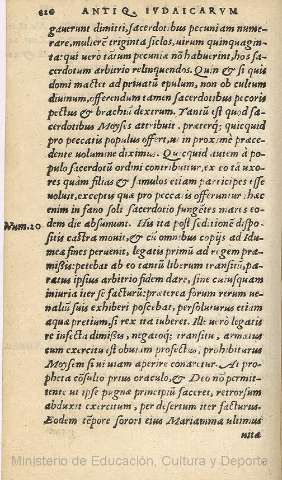 620 ANTIQ. IVDAICARVM
gauerunt dimitti, sacerdotibus pecuniam nume-
rare, mulierē triginta siclos, uirum quinquagin-
ta: qui uero tātum pecuniæ nō habuerint, hos sa-
cerdotum arbitrio relinquendos. Quin & si quis
domi mactet ad priuatū epulum, non ob cultum
diuinum, offerendum tamen sacerdotibus pecoris
pectus & brachiū dextrum. Tantū est quod sa-
cerdotibus Moyses attribuit. præterq; quicquid
pro peccatis populus offert, ut in proximè præce-
dente volumine diximus. Quicquid autem à pō-
pulo sacerdotū ordini contribuitur, ex eo tā uxo-
res quàm filias & famulos etiam participes esse
voluit, exceptis quæ pro peccatis offeruntur: hæc
enim in fano soli sacerdotio fungētes mares eo-
dem die absumunt. His ita post seditionē dispo-
Num.20 sitis castra mouit, & cū omnibus copijs ad Idu-
mææ fines peruenit, legatis primū ad regem præ-
missis: petebat ab eo tantū liberum transitū, pa-
ratus ipsius arbitrio fidem dare, sine cuiusquam
iniuria iter se facturū: præterea forum rerum ue-
naliū suis exhiberi poscebat, persoluturus etiam
aquæ pretium, si rex ita iuberet. Ille uerò legatis
re infecta dimissis, negatoq; transitu, armatus
cum exercitu est obuiam profectus, prohibiturus
Moysem si ui uiam aperire conaretur. At pro-
pheta cōsulto prius oraculo, & Deo nō permit-
tente ut ipse pugnæ principiū faceret, retrorsum
abduxit exercitum, per desertum iter facturus.
Eodem tēpore sorori eius Mariammæ ultimus
uitæ
Ministerio de Educación, Cultura y Deporte